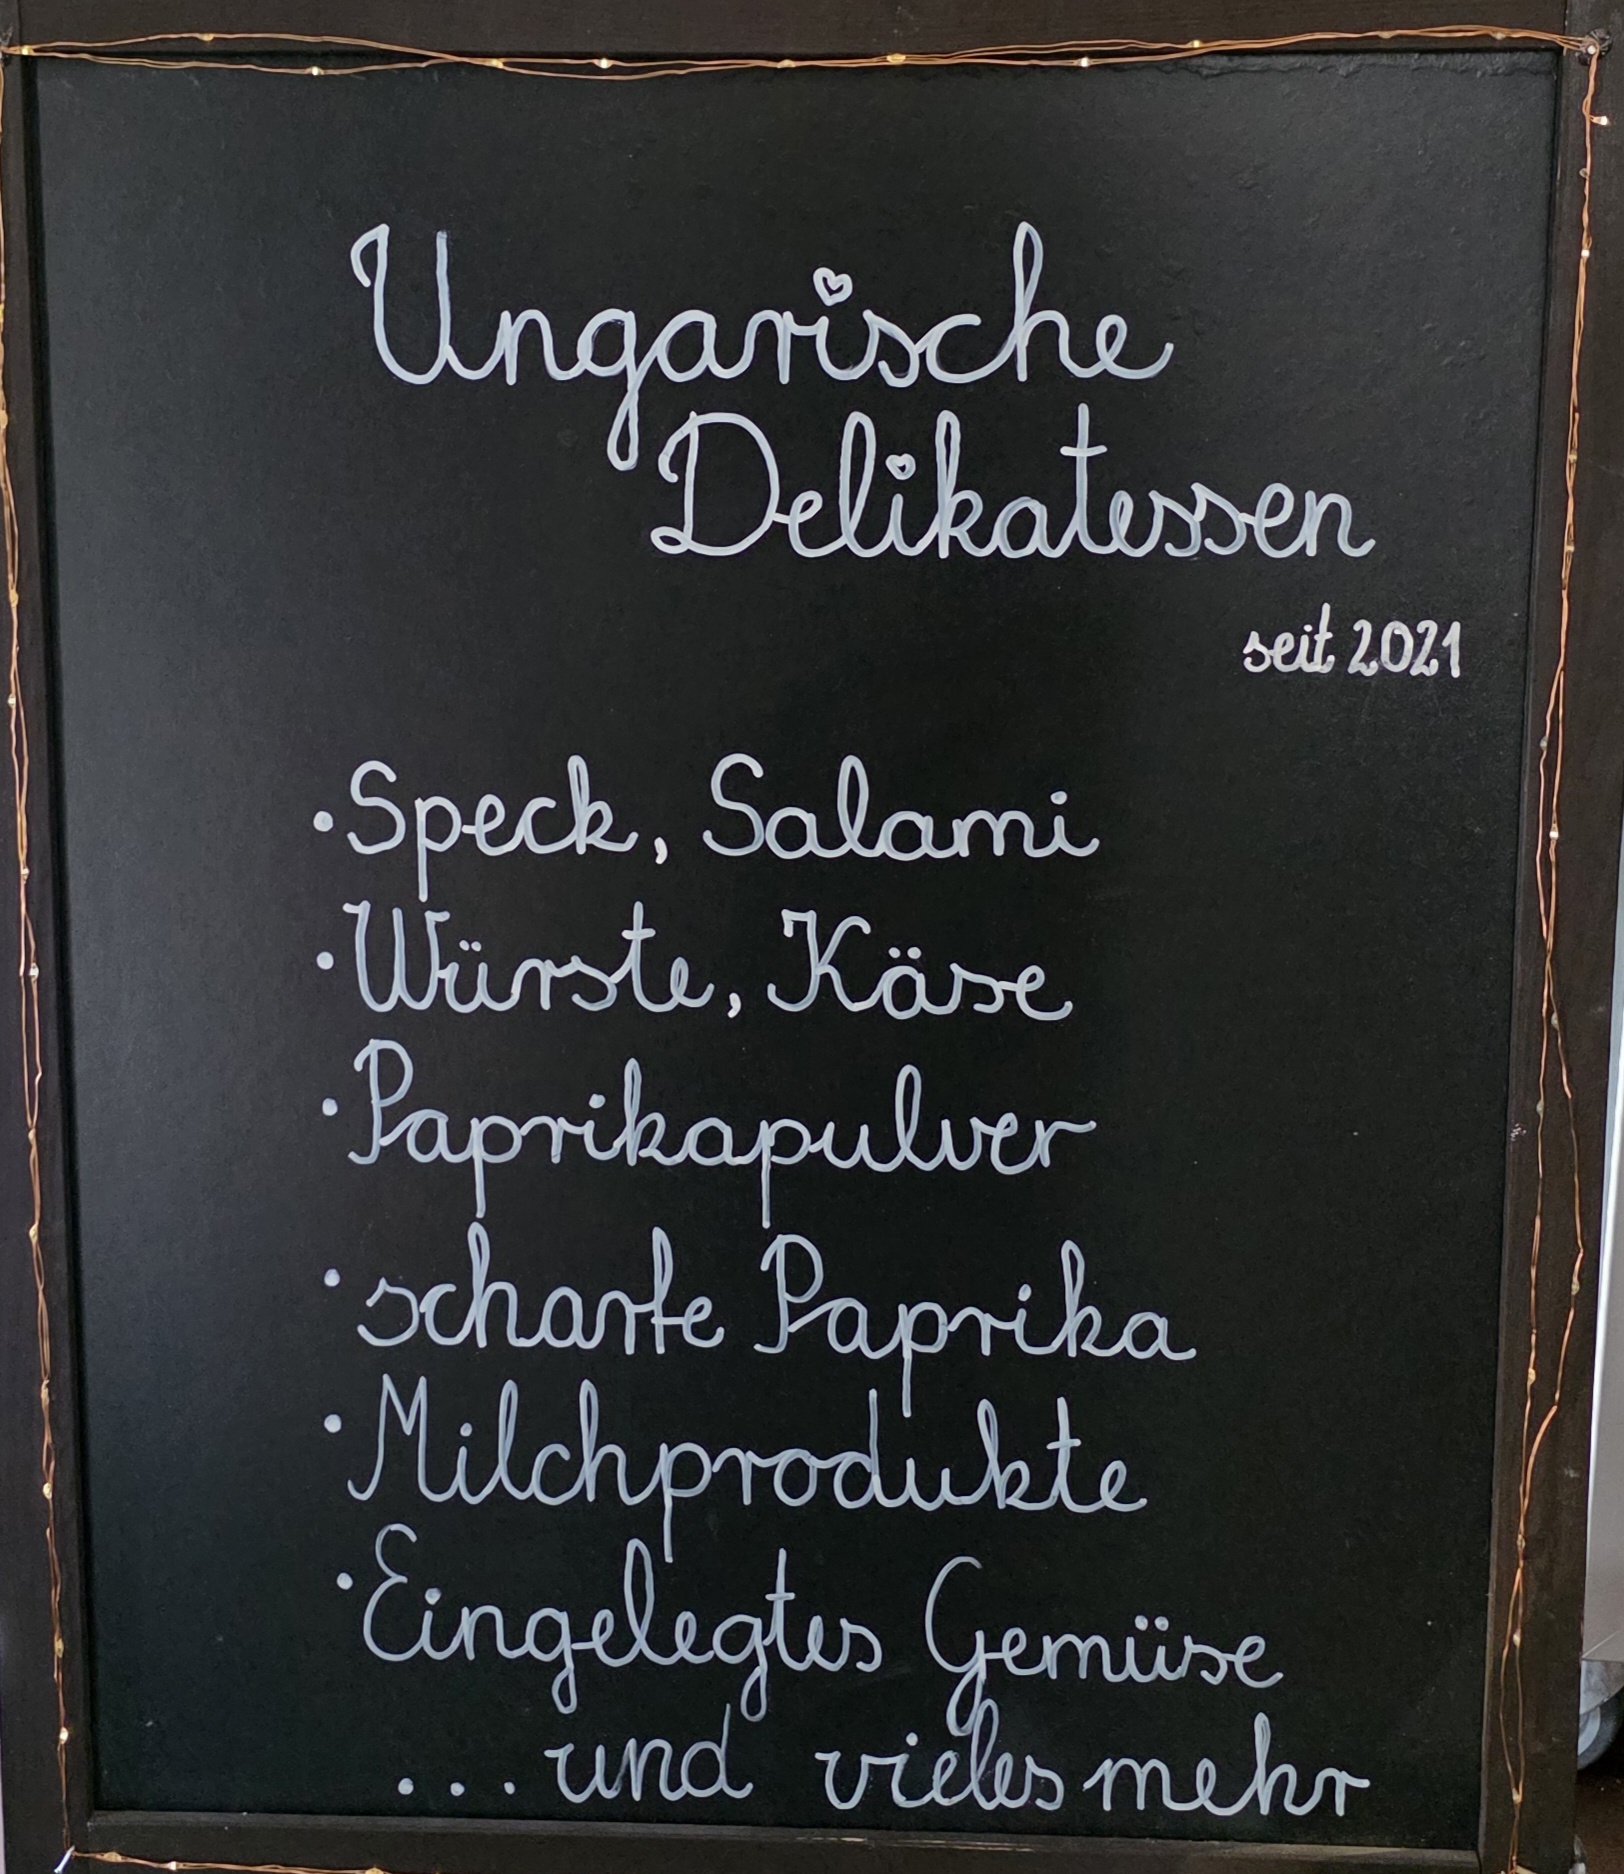 Ungarische
Delikatessen
seit 2021
• Speck, Salami
• Würste, Käse
• Paprikapulver
• scharfe Paprika
• Milchprodukte
• Eingelegtes Gemüse
... und vieles mehr